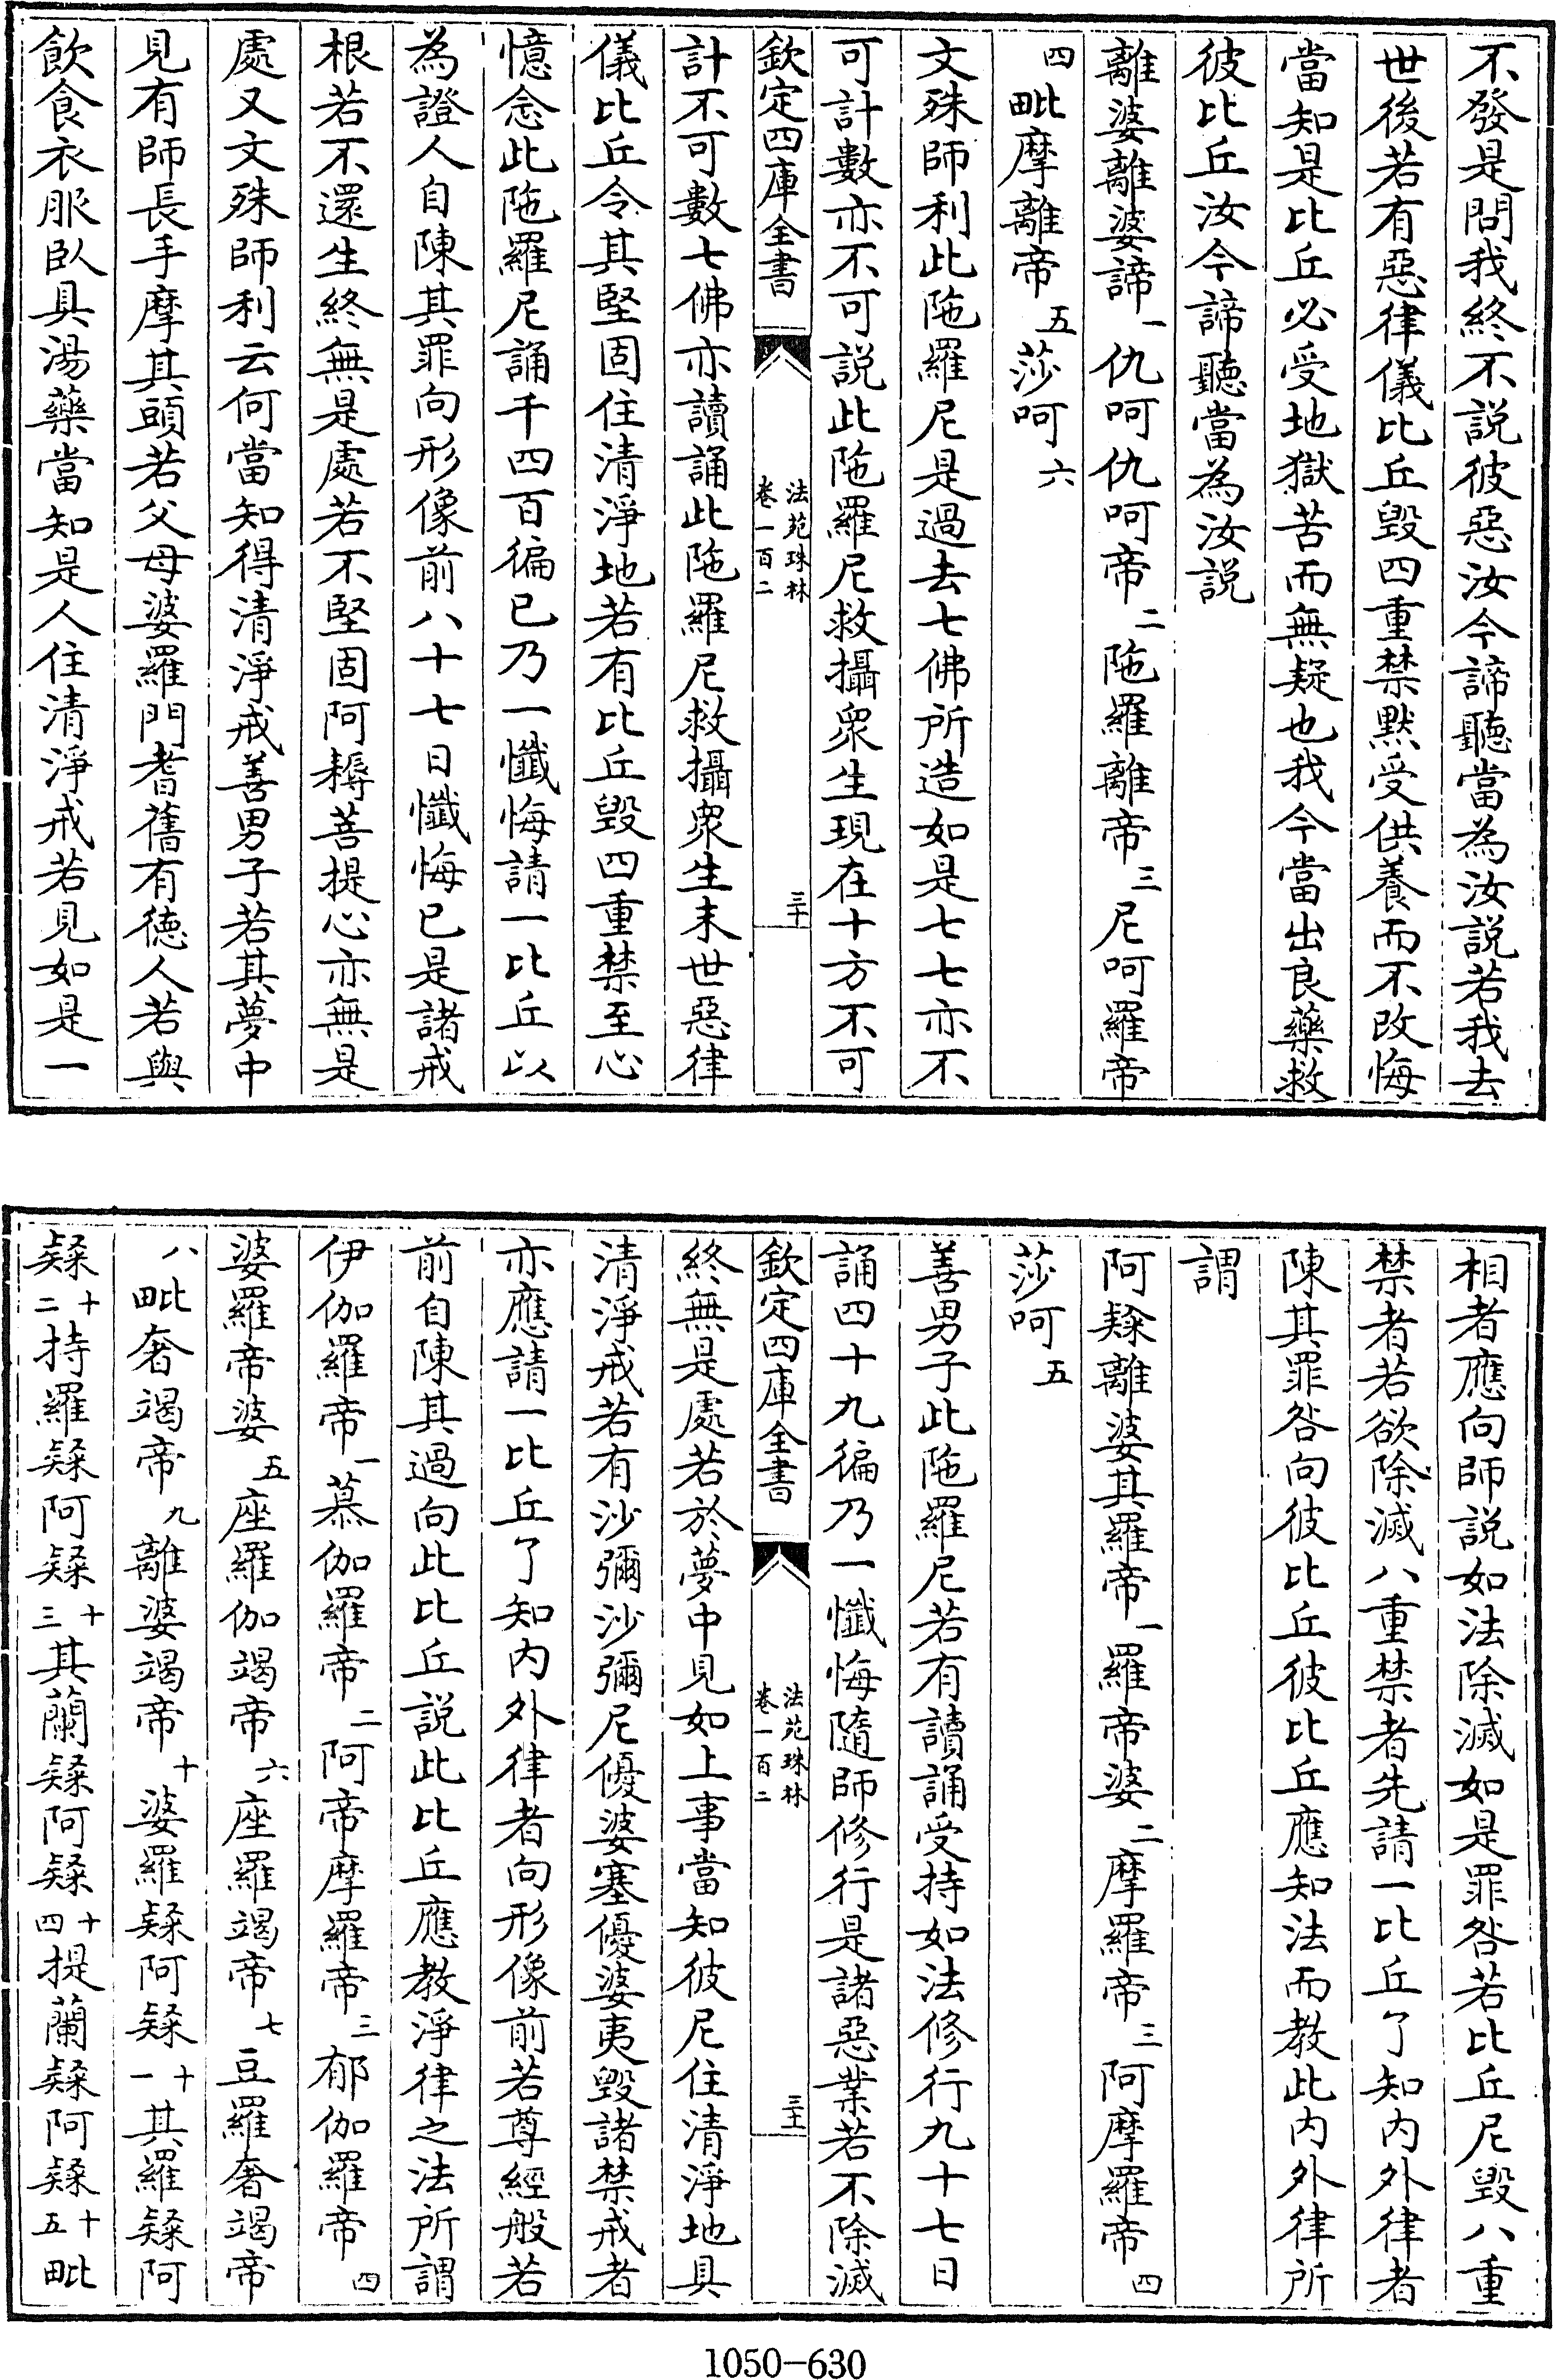 不發是問我終不説彼惡汝今諦聽當為汝説若我去
世後若有惡律儀比丘毀四重禁默受供養而不改悔
當知是比丘必受地獄苦而無疑也我今當出良藥救
彼比丘汝今諦聽當為汝説
離婆離婆諦一仇呵仇呵帝二陁羅離帝三尼呵羅帝
四毗摩離帝五莎呵六
文殊師利此陁羅尼是過去七佛所造如是七七亦不
可計數亦不可説此陁羅尼救攝衆生現在十方不可
欽定四庫全書
法苑珠林
卷一百二
三十
計不可數七佛亦讀誦此陁羅尼救攝衆生末世惡律
儀比丘令其堅固住清淨地若有比丘毀四重禁至心
憶念此陁羅尼誦千四百徧已乃一懺悔請一比丘以
為證人自陳其罪向形像前八十七日懺悔已是諸戒
根若不還生終無是處若不堅固阿耨菩提心亦無是
處又文殊師利云何當知得清淨戒善男子若其夢中
見有師長手摩其頭若父母婆羅門耆舊有徳人若與
飲食衣服臥具湯藥當知是人住清淨戒若見如是一
相者應向師説如法除滅如是罪咎若比丘尼毀八重
禁者若欲除滅八重禁者先請一比丘了知内外律者
陳其罪咎向彼比丘彼比丘應知法而教此内外律所
謂
阿隸離婆其羅帝一羅帝婆二摩羅帝三阿摩羅帝四
莎呵五
善男子此陁羅尼若有讀誦受持如法修行九十七日
誦四十九徧乃一懺悔隨師修行是諸惡業若不除滅
欽定四庫全書
法苑珠林
卷一百二
三十一
終無是處若於夢中見如上事當知彼尼住清淨地具
清淨戒若有沙彌沙彌尼優婆塞優婆夷毀諸禁戒者
亦應請一比丘了知内外律者向形像前若尊經般若
前自陳其過向此比丘説此比丘應教淨律之法所謂
伊伽羅帝一慕伽羅帝二阿帝摩羅帝三郁伽羅帝四
婆羅帝婆五座羅伽竭帝六座羅竭帝七豆羅奢竭帝
八毗奢竭帝九離婆竭帝十婆羅隸阿隸十一其羅隸阿
隸十二持羅隸阿隸十三其蘭隸阿隸十四提蘭隸阿隸十五毗
1050-630